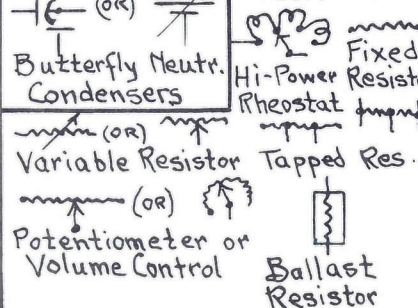 (OR)
Butterfly Neutr.
Condensers
Hi-Power
Rheostat
Fixed
(OR)
Variable Resistor
Tapped Res.
(OR)
Potentiometer or
Volume Control
Ballast
Resistor